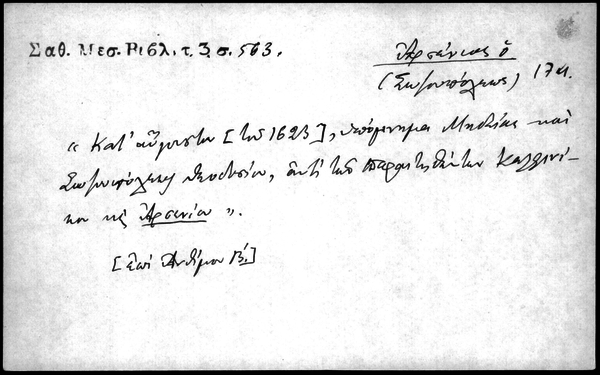 Σαθ. Μεσ. Βιβλ. τ. 3, σ. 563.
Ἀρσένιος ὁ
(Σωζοπόλεως) 17 αι.
« Κατ' αὔγουστον [τοῦ 1623], ὑπόμνημα Μηδείας καὶ
Σωζοπόλεως Θεοδοσίου, ἀντὶ τοῦ παραιτηθέντος Καλλινί-
κου τῆς Ἀρσενίου ».
[Ἐπὶ Ἀνθίμου Β΄.]